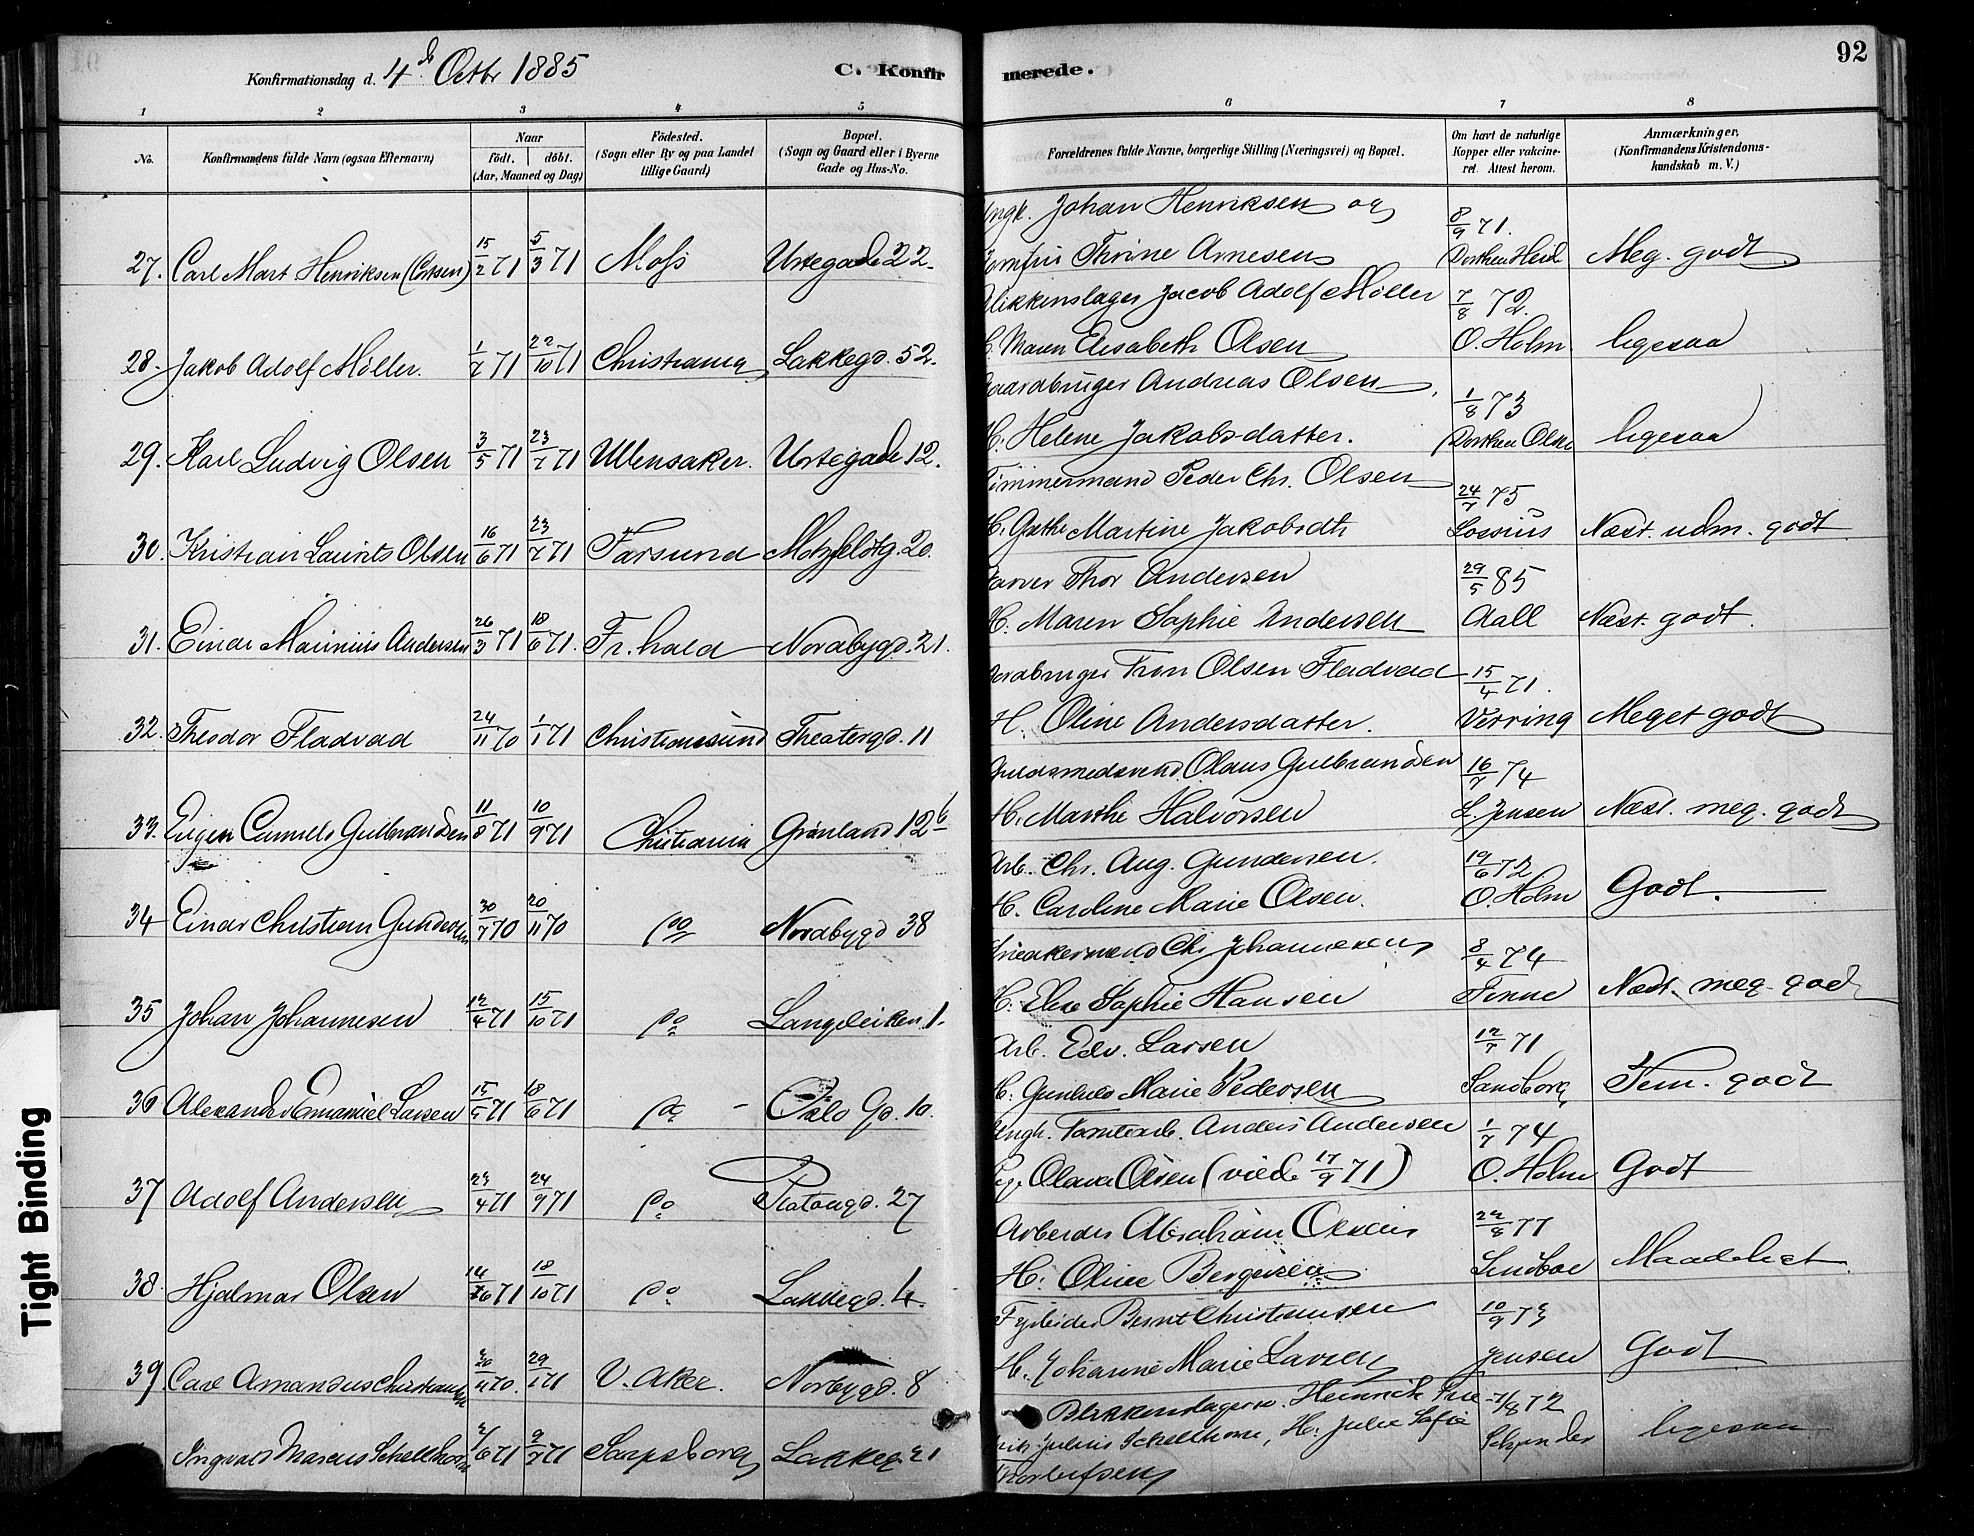 Konfirmationsdag d. 4de Octbr 1885
C. Konfirmerede.
92
1 2 3 4 5 6 7 8
No.
Konfirmandens fulde Navn (ogsaa Efternavn)
Naar
födt. döbt.
(Aar, Maaned og Dag)
Födested.
(Sogn eller By og paa Landet tillige Gaard)
Bopæl.
(Sogn og Gaard eller i Byerne Gade og Hus-No.
Forældrenes fulde Navne, borgerlige Stilling (Næringsvei) og Bopæl.
Om havt de naturlige Kopper eller vakcineret. Attest herom.
Anmærkninger,
(Konfirmandens Kristendomskundskab m. V.)
Ungk. Johan Henriksen og 8/9 71.
27. Carl Mart Henriksen 15/2 71 5/3 71 Moss Urtegade 22. Thrine Arnesen Dorthea Meg. godt
Blikkenslager Jacob Adolf Møller 7/8 72.
28. Jakob Adolf Møller. 1/7 71 22/10 71 Christiania Lakkegd. 52. H. Maren Elisabeth Olsen O. Holm ligesaa
Gaardbruger Andreas Olsen 1/8 73
29. Karl Ludvig Olsen 3/5 71 23/7 71 Ullensaker. Urtegade 12. H. Helene Jakobsdatter. Dorthea Olsen ligesaa
Timmermand Peder Chr. Olsen 24/7 75
30. Kristian Laurits Olsen 16/6 71 23/7 71 Farsund Motzfeldtg. 20. H. Grethe Martine Jakobsdtr Lossius Næst. udm. godt
Garver Thor Andersen 29/5 85
31. Einar Marinius Andersen 26/3 71 18/6 71. Fr.hald Nordbygd. 21. H. Maren Sophie Andersen Aall Næst. godt.
Gardbruger Tron Olsen Fladvad 15/4 71.
32. Theodor Fladvad 24/11 70 1/1 71 Christianssund Theatergd. 11 H. Oline Andersdatter. Verring Meget godt
Guldsmedsvend Olaus Gulbrandsen 16/7 74
33. Eugen Gulbrandsen 11/8 71 10/9 71 Christiania Grønland 12 b H. Marthe Halvorsen L. Jensen Næst. meg. godt
Arb. Chr. Aug. Gundersen. 19/6 72
34 Einar Christian Gundersen 30/7 70 20/11 70 do Nordbygd 38 H. Caroline Marie Olsen. O. Holm Godt.
Chr Johannesen 8/4 74
35 Johan Johannesen 12/4 71 15/10 71 do Langeleiken 1. H. Elise Sophie Hansen Næst. meg. godt
Arb. Edv. Larsen 12/7 71
36 Alexander Emanuel Larsen 15/5 71 18/6 71 do Oslo Gd. 10. H. Gunhild Marie Pedersen Sandborg Tem. godt
Ungk. Tomtearb. Anders Andersen 1/7 74
37 Adolf Andersen 23/4 71 24/9 71 do Platougd. 27 Pige Olava Olsen (viede 17/9 71) O. Holm Godt
Arbeider Abraham Olsen 22/8 77
38 Hjalmar Olsen 14/6 71 18/10 71 do Lakkegd. 4. H. Oline Bergersen Lindboe Maadeligt
Bernt Christiansen 10/9 73
39 Carl Amandus Christiansen 20/11 70. 29/1 71 V. Aker. Norbygd. 8 H. Johanne Marie Larsen Jensen Godt
Blikkenslagersv. Heinrich 7/8 72
Ingvald Marcus Schellhorn 2/6 71 9/7 71 Sarpsborg Lakkeg. 21 Julius Schellhorn, H. Julie Sofie ligesaa
Thorleifsen
Tight Binding